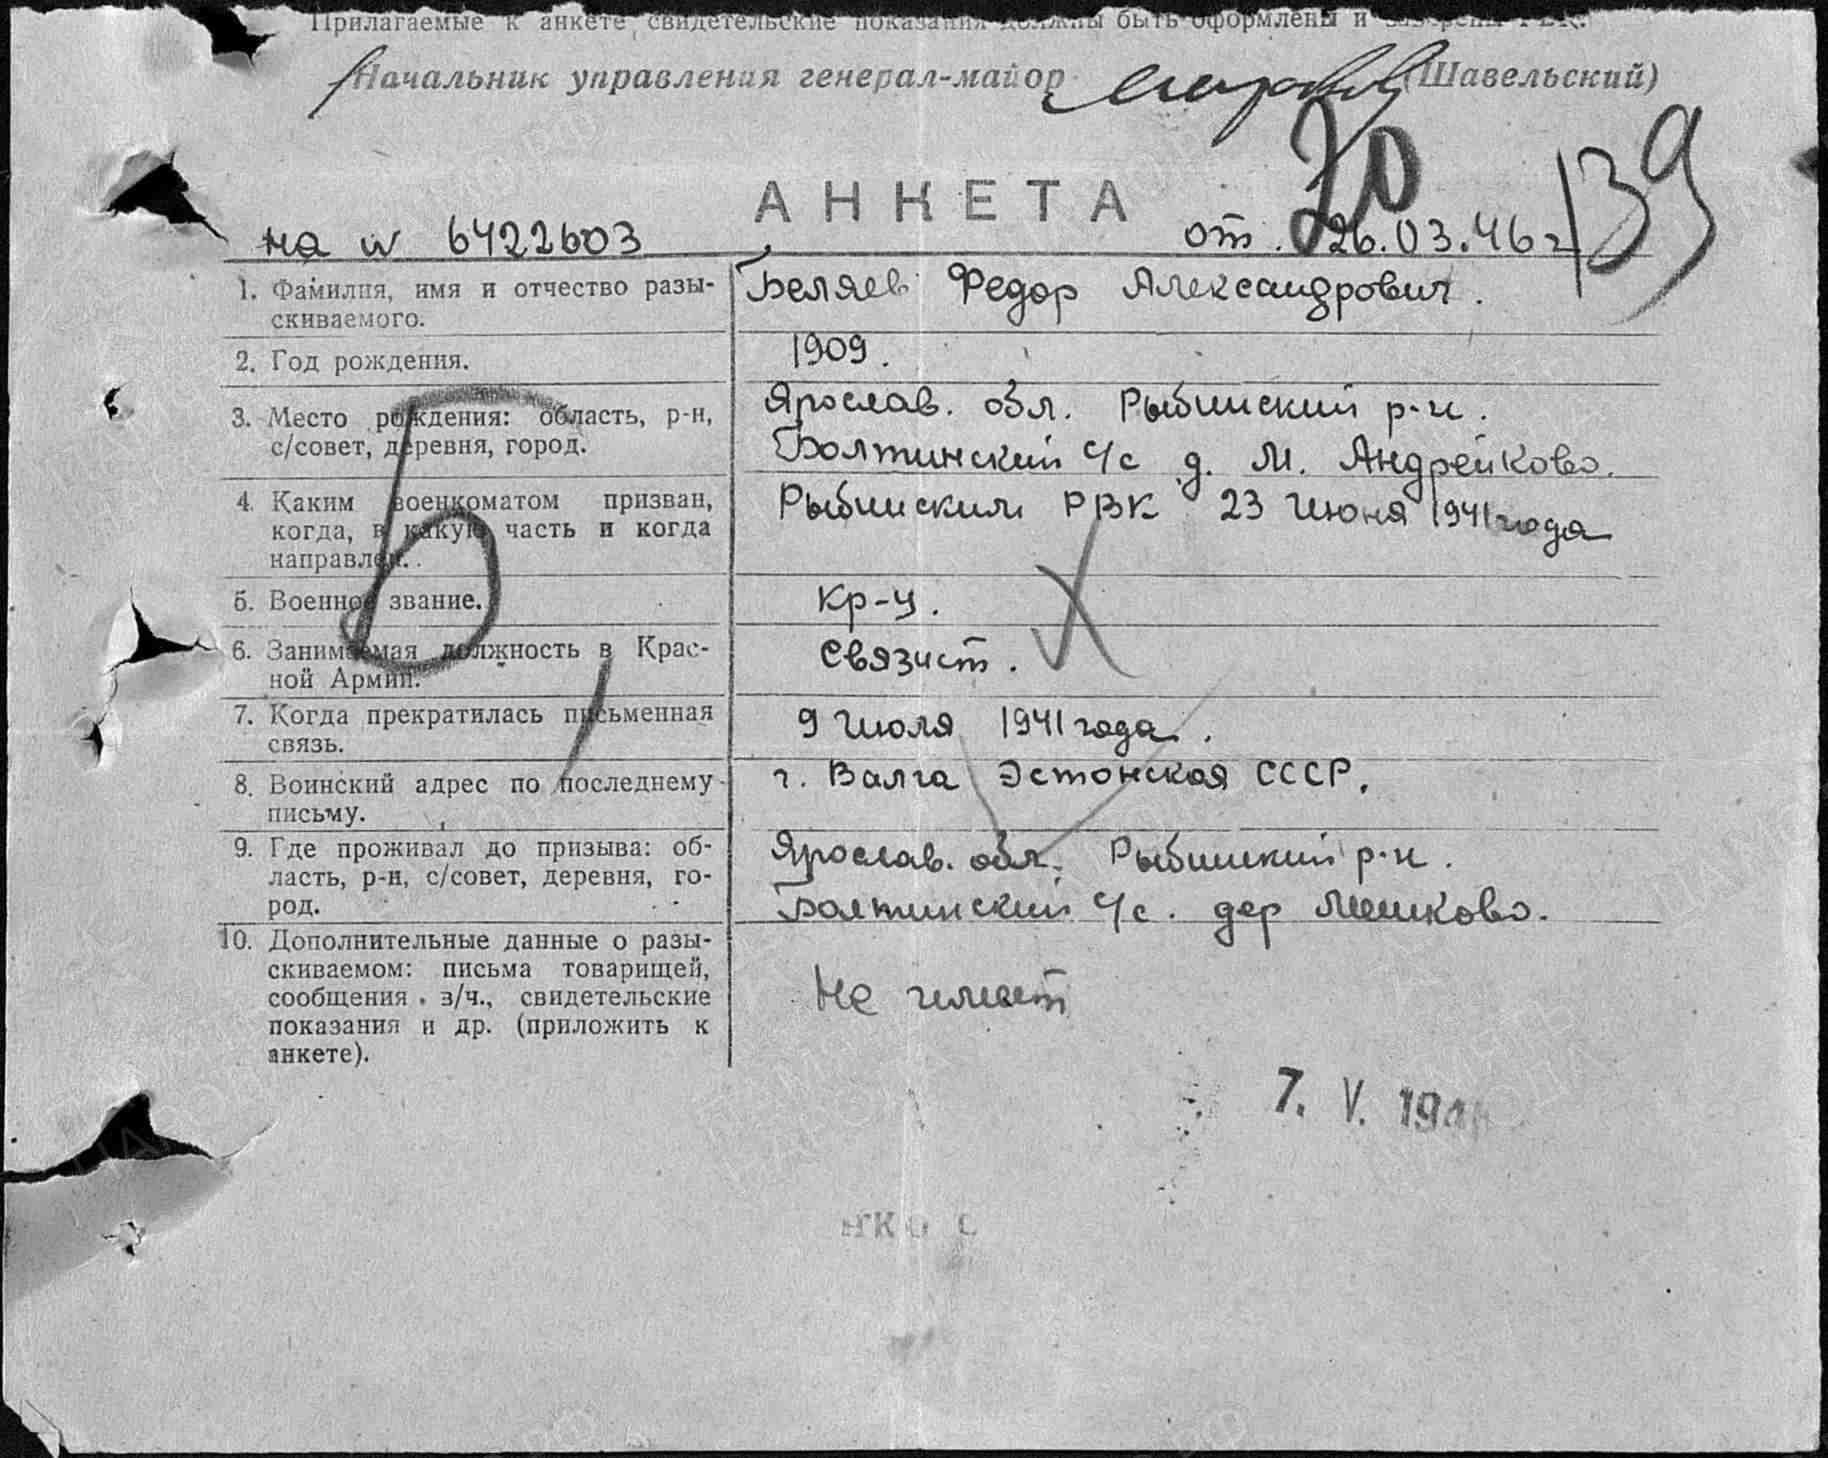 Прилагаемые к анкете свидетельские показания должны быть оформлены и заверены РВК.
Начальник управления генерал-майор (Шавельский)
70
139
АНКЕТА
на № 6422603 от 26.03.46 г
1. Фамилия, имя и отчество разы-
скиваемого.
Беляев Федор Александрович.
2. Год рождения.
1909.
3. Место рождения: область, р-н,
с/совет, деревня, город.
Ярослав. обл. Рыбинский р-н.
Болтинский с/с д. М. Андрейково.
4. Каким военкоматом призван,
когда, в какую часть и когда
направлен.
Рыбинским РВК 23 Июня 1941 года
5. Военное звание.
Кр-ц.
6. Занимаемая должность в Крас-
ной Армии.
Связист.
7. Когда прекратилась письменная
связь.
9 Июля 1941 года.
8. Воинский адрес по последнему
письму.
г. Валга Эстонская СССР.
9. Где проживал до призыва: об-
ласть, р-н, с/совет, деревня, го-
род.
Ярослав. обл. Рыбинкий р-н.
Болтинский с/с. дер Мешково.
10. Дополнительные данные о разы-
скиваемом: письма товарищей,
сообщения в/ч., свидетельские
показания и др. (приложить к
анкете).
Не имеет
7. V. 194
НКО С